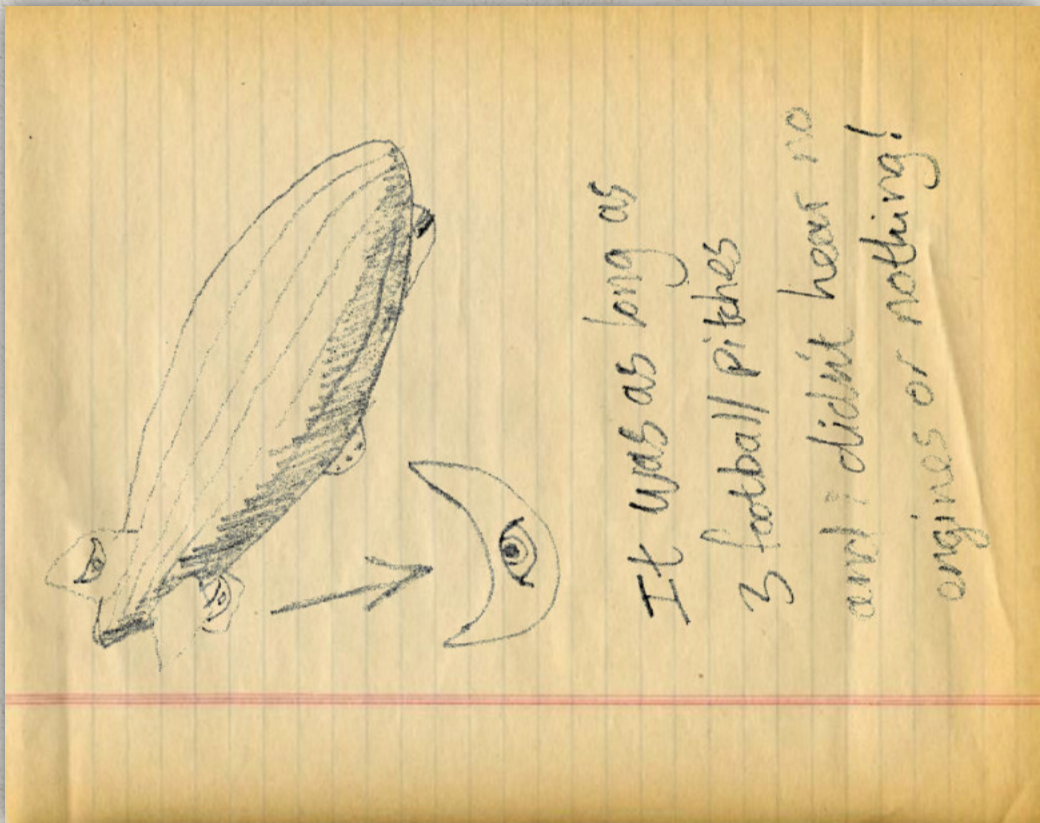 It was as long as
3 football pitches
and i didn't hear no
engines or nothing!